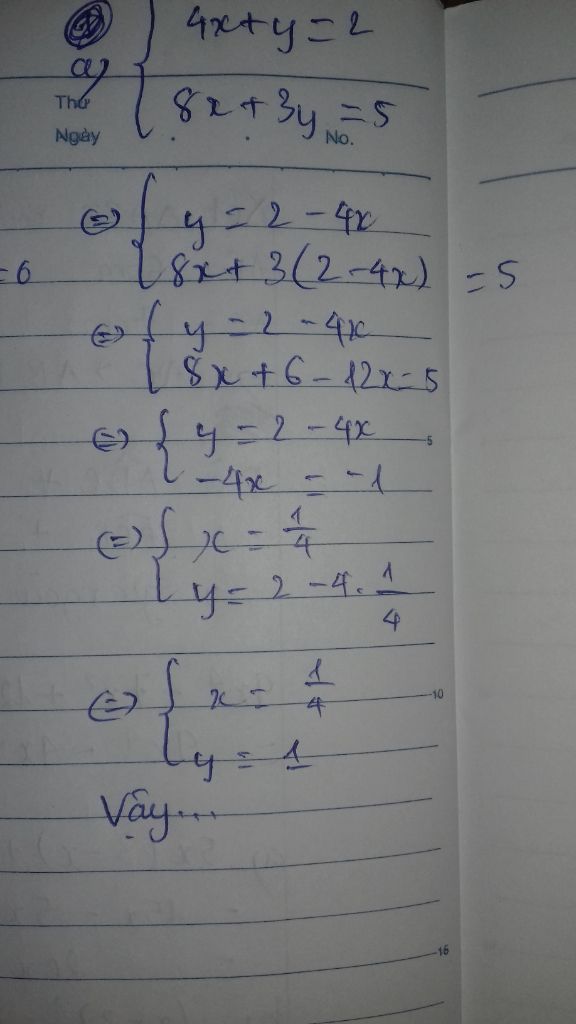 4x + y = 2
a)
8x + 3y = 5
Thứ
Ngày
No.
⇔ { y = 2 - 4x
8x + 3(2 - 4x) = 5
= 6
⇔ { y = 2 - 4x
8x + 6 - 12x = 5
⇔ { y = 2 - 4x
5
-4x = -1
⇔ { x = 1/4
y = 2 - 4. 1/4
⇔ { x = 1/4
10
y = 1
Vậy...
15